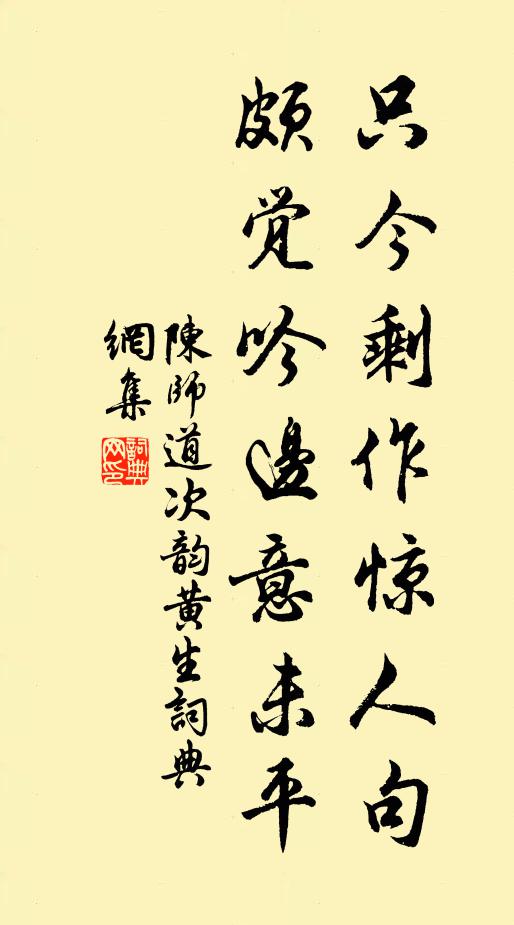 只今剩作惊人句
颇觉吟邊意未平
陳師道次韵黄生詞典
網集
詞典网印